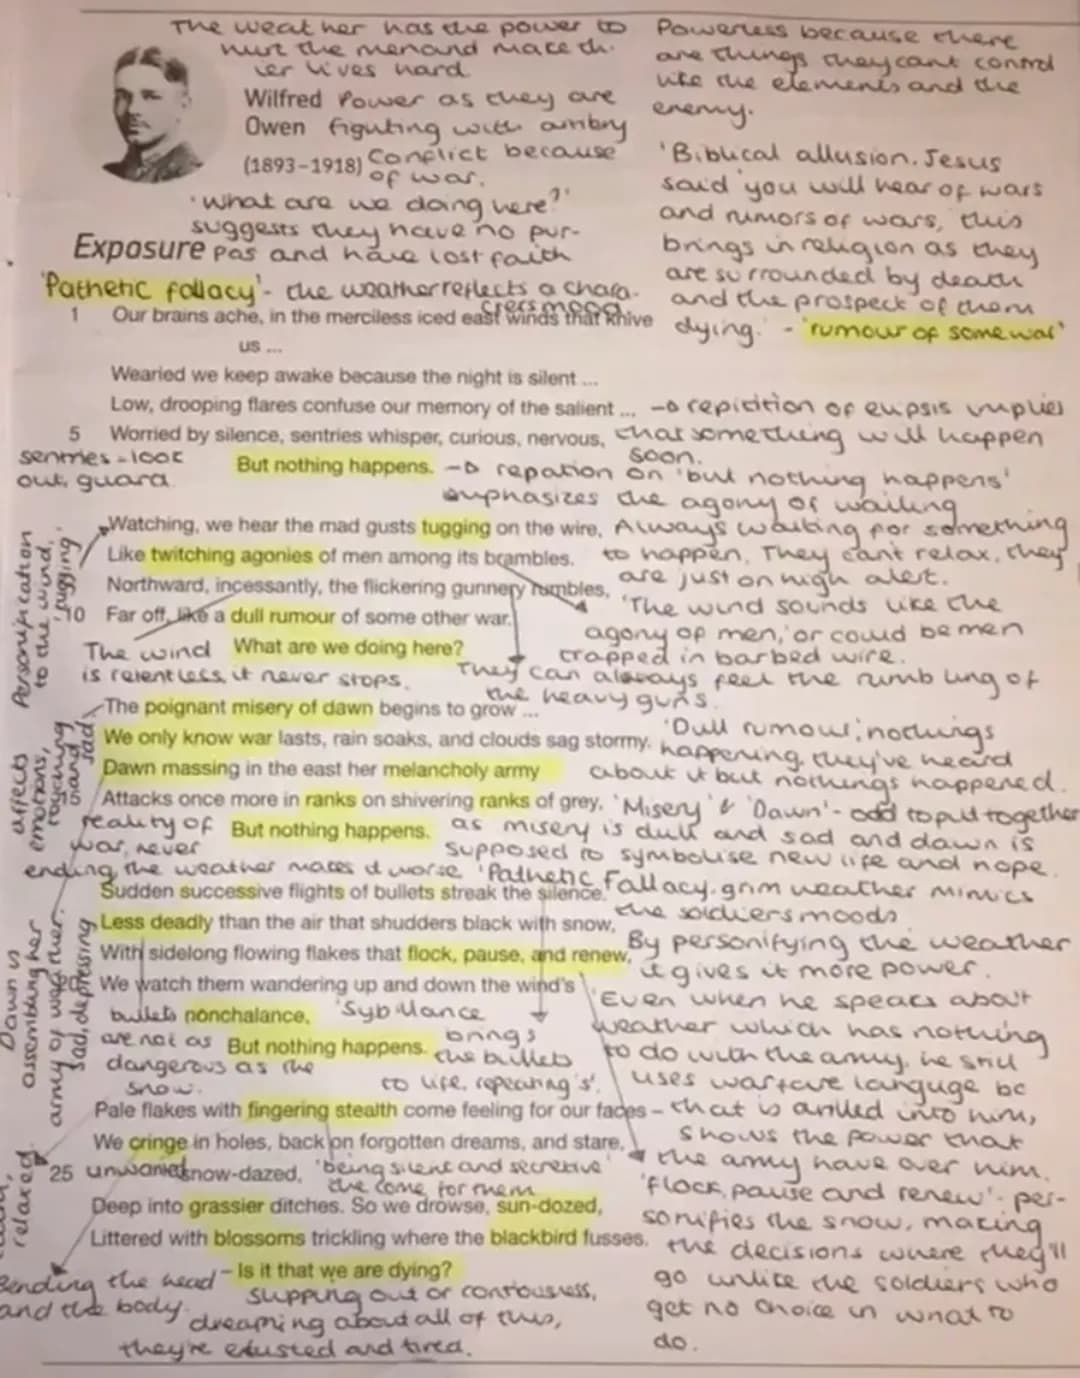 The weather has the power to
hurt the menand make th-
ier lives hard
Wilfred Power as they are
Owen figuting with anbry
(1893–1918) Conflict because
of war.
'what are we doing here?'
suggests they have no pur-
Exposure pas and have lost faith
'Pathetic fallacy' - the weather reflects a chara-
cters mood
Powerless because there
are things they cant control
like the elements and the
enemy.
'Biblical allusion. Jesus
said 'you will hear of wars
and rumors of wars, this
brings in religion as they
are surrounded by death
and the prospect of them
dying.' - 'rumour of some war'
1 Our brains ache, in the merciless iced east winds that knive
us ...
Wearied we keep awake because the night is silent ...
Low, drooping flares confuse our memory of the salient ... → repitition of elipsis implies
5 Worried by silence, sentries whisper, curious, nervous, that something will happen
soon.
sentries - look
out, guard
But nothing happens. → repation on 'but nothing happens'
emphasizes the agony of waiting
Watching, we hear the mad gusts tugging on the wire, Always waiting for something
Like twitching agonies of men among its brambles. to happen, They cant relax, they
are just on high alert.
Northward, incessantly, the flickering gunnery rumbles,
10 Far off, like a dull rumour of some other war.
'The wind sounds like the
agony of men,' or could be men
trapped in barbed wire.
The wind What are we doing here?
is relentless, it never stops.
They can always feel the rumbling of
the heavy guns.
Personification
to the wind,
'tugging'
The poignant misery of dawn begins to grow ...
We only know war lasts, rain soaks, and clouds sag stormy.
'Dull rumour', nothings
happening, they've heard
about it but nothings happened.
Dawn massing in the east her melancholy army
15 Attacks once more in ranks on shivering ranks of grey, 'Misery' & 'Dawn' - odd to put together
But nothing happens. as misery is dull and sad and dawn is
supposed to symbolise new life and hope.
reality of
war, never
ending, the weather makes it worse
affects
emotions,
and
sad
'Pathetic Fallacy. grim weather mimics
the soldiers moods
Sudden successive flights of bullets streak the silence.
Less deadly than the air that shudders black with snow,
With sidelong flowing flakes that flock, pause, and renew,
By personifying the weather
it gives it more power.
20 We watch them wandering up and down the wind's
nonchalance,
But nothing happens.
bullets
are not as
dangerous as the
snow.
'Sybillance
brings
the bullets
to life, repeating 's'.
'Even when he speaks about
weather which has nothing
to do with the army, he still
uses warfare languge bc
that is drilled into him,
shows the power that
the army have over him.
Dawn is
assembling her
army of weather.
sad, depressing
Pale flakes with fingering stealth come feeling for our faces –
We cringe in holes, back on forgotten dreams, and stare,
25 snow-dazed,
'being silent and secretive'
the come for them
Deep into grassier ditches. So we drowse, sun-dozed,
Littered with blossoms trickling where the blackbird fusses.
– Is it that we are dying?
relaxed.
Bending the head
and the body.
slipping out or contousness,
dreaming about all of this,
they're exusted and tired.
'flock, pause and renew' - per-
sonifies the snow, making
the decisions where they'll
go unlike the soldiers who
get no choice in what to
do.